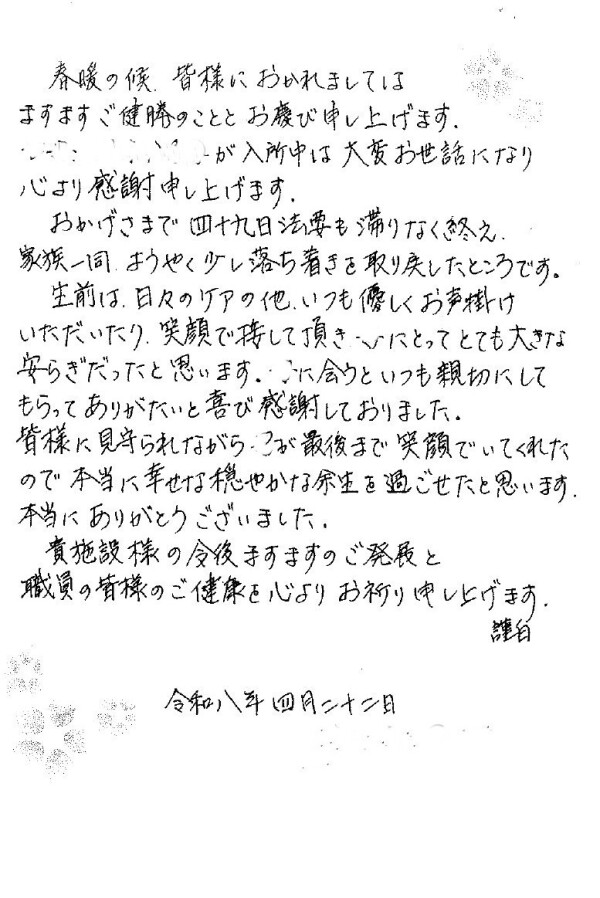 春暖の候、皆様におかれましては
ますますご健勝のこととお慶び申し上げます。
が入所中は大変お世話になり
心より感謝申し上げます。
おかげさまで四十九日法要も滞りなく終え、
家族一同、ようやく少し落ち着きを取り戻したところです。
生前は、日々のケアの他、いつも優しくお声掛け
いただいたり、笑顔で接して頂き にとってとても大きな
安らぎだったと思います。 に会うといつも親切にして
もらってありがたいと喜び感謝しておりました。
皆様に見守られながら が最後まで笑顔でいてくれた
ので本当に幸せな穏やかな余生を過ごせたと思います。
本当にありがとうございました。
貴施設様の今後ますますのご発展と
職員の皆様のご健康を心よりお祈り申し上げます。
謹白
令和八年四月二十二日